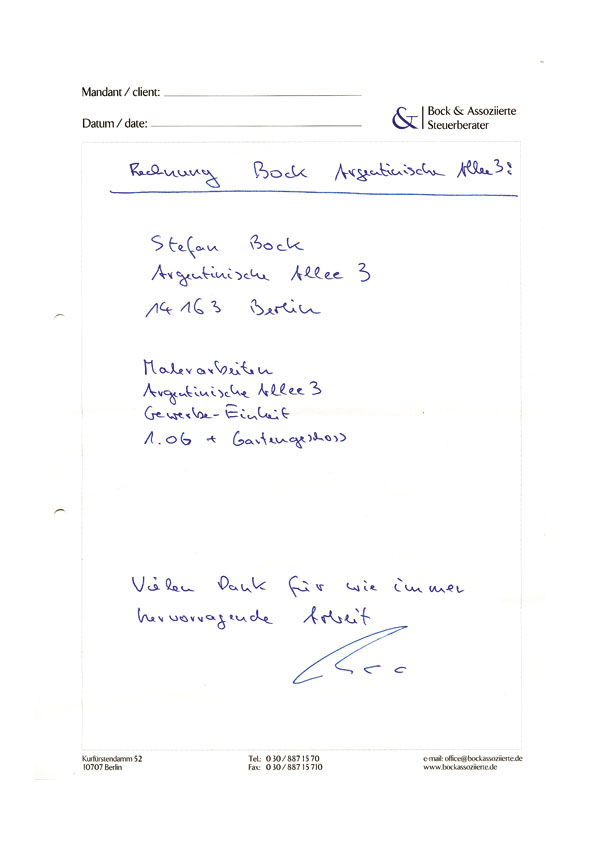 Mandant / client:
Datum / date:
& Bock & Assoziierte
Steuerberater
Rechnung Bock Argentinische Allee 3:
Stefan Bock
Argentinische Allee 3
14 163 Berlin
Malerarbeiten
Argentinische Allee 3
Gewerbe-Einheit
1. OG + Gartengeschoss
Vielen Dank für wie immer
hervorragende Arbeit
Kurfürstendamm 52
10707 Berlin
Tel.: 0 30 / 887 15 70
Fax: 0 30 / 887 15 710
e-mail: office@bockassoziierte.de
www.bockassoziierte.de